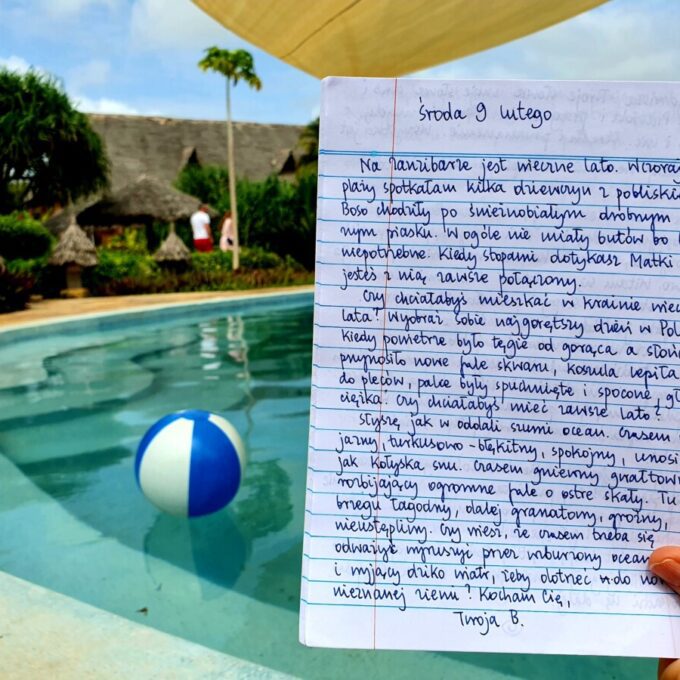 środa 9 lutego
Na Zanzibarze jest wieczne lato. Wczoraj
plaży spotkałam kilka dziewczyn z poblis
Boso chodziły po śnieżnobiałym drobnym
nym piasku. W ogóle nie miały butów bo
niepotrzebne. Kiedy stopami dotykasz Matki
jesteś z nią zawsze połączony.
Czy chciałabyś mieszkać w krainie wiec
lata? Wyobraź sobie najgorętszy dzień w Pol
kiedy powietrze było tęgie od gorąca a słoń
przynosiło nowe fale skwaru, koszula lepiła
do pleców, palce były spuchnięte i spocone, gł
ciężka. Czy chciałabyś mieć zawsze lato?
Słyszę jak w oddali szumi ocean. Czasem
jazny turkusowo-błękitny, spokojny, unosi
jak kołyska snu. Czasem gniewny gwałtown
rozbijający ogromne fale o ostre skały. Tu
brzegu łagodny, dalej granatowy, groźny,
nieustępliwy. Czy wiesz, że czasem trzeba się
odważyć wyruszyć przez wzburzony ocean
i wyjący dziko wiatr, żeby dotrzeć do now
nieznanej ziemi? Kocham Cię,
Twoja B.